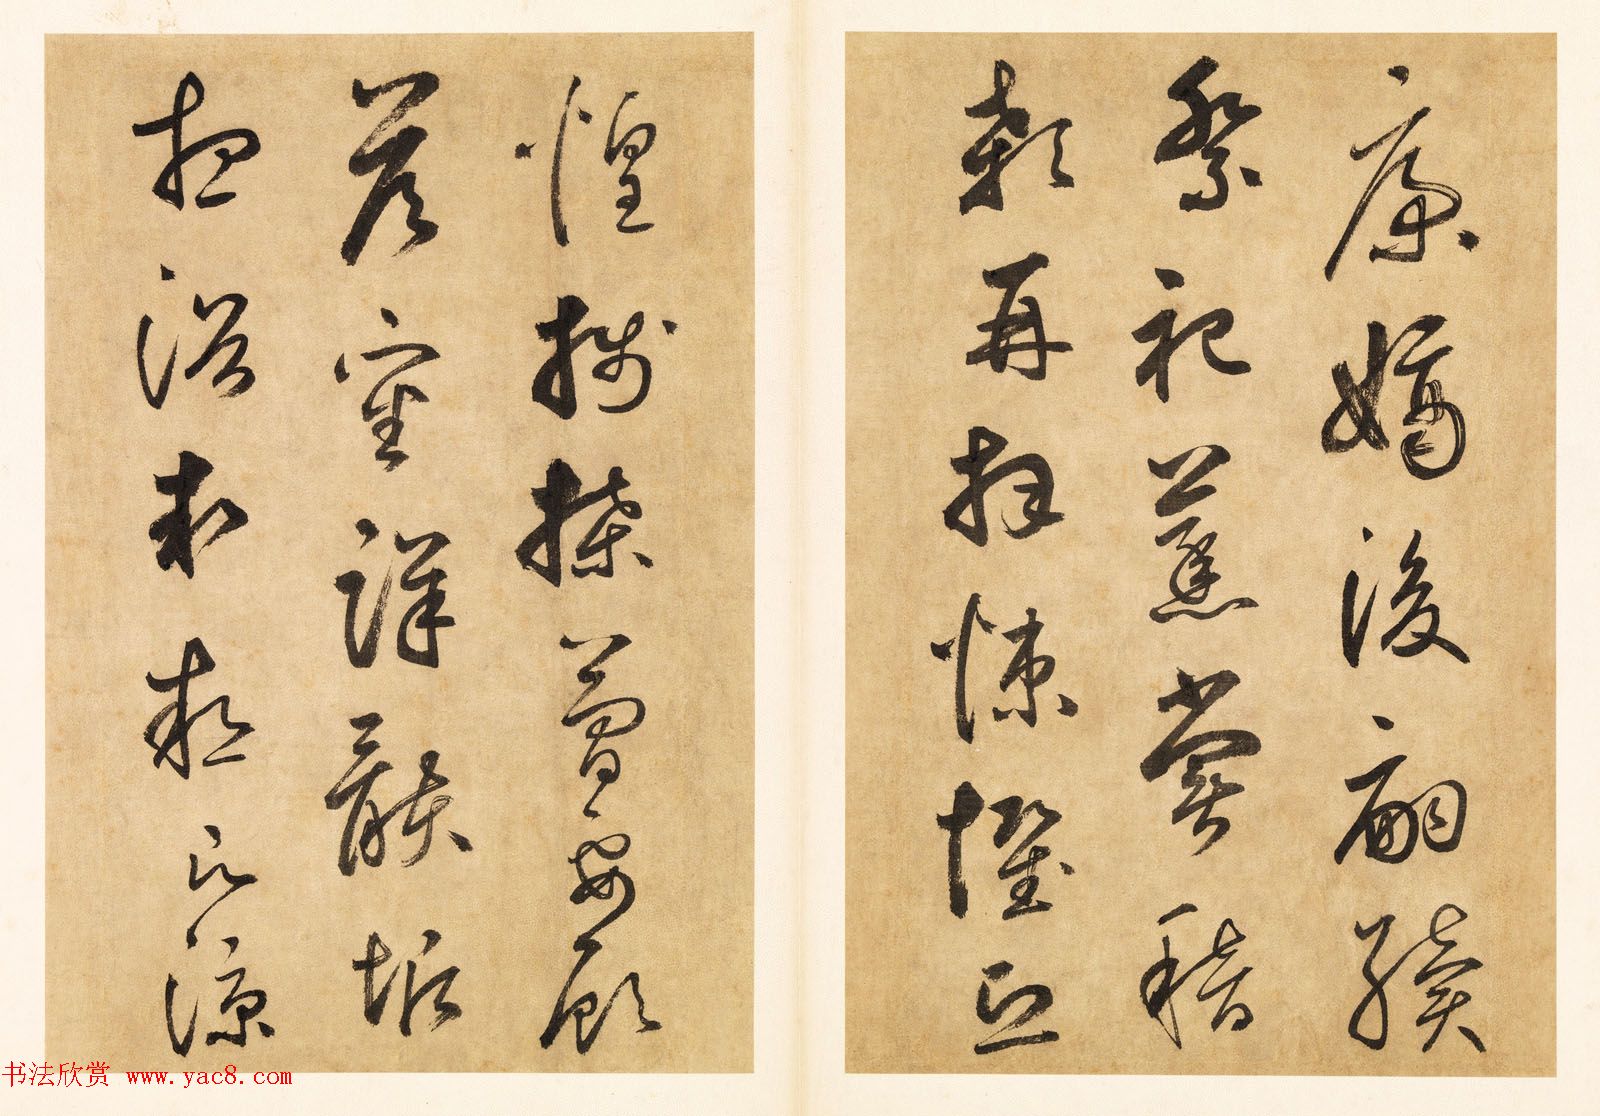 康嫡後嗣續
祭祀蒸嘗稽
顙再拜悚懼恐
惶牋牒簡要顧
答審詳骸垢
想浴執熱願涼
书法欣赏 www.yac8.com